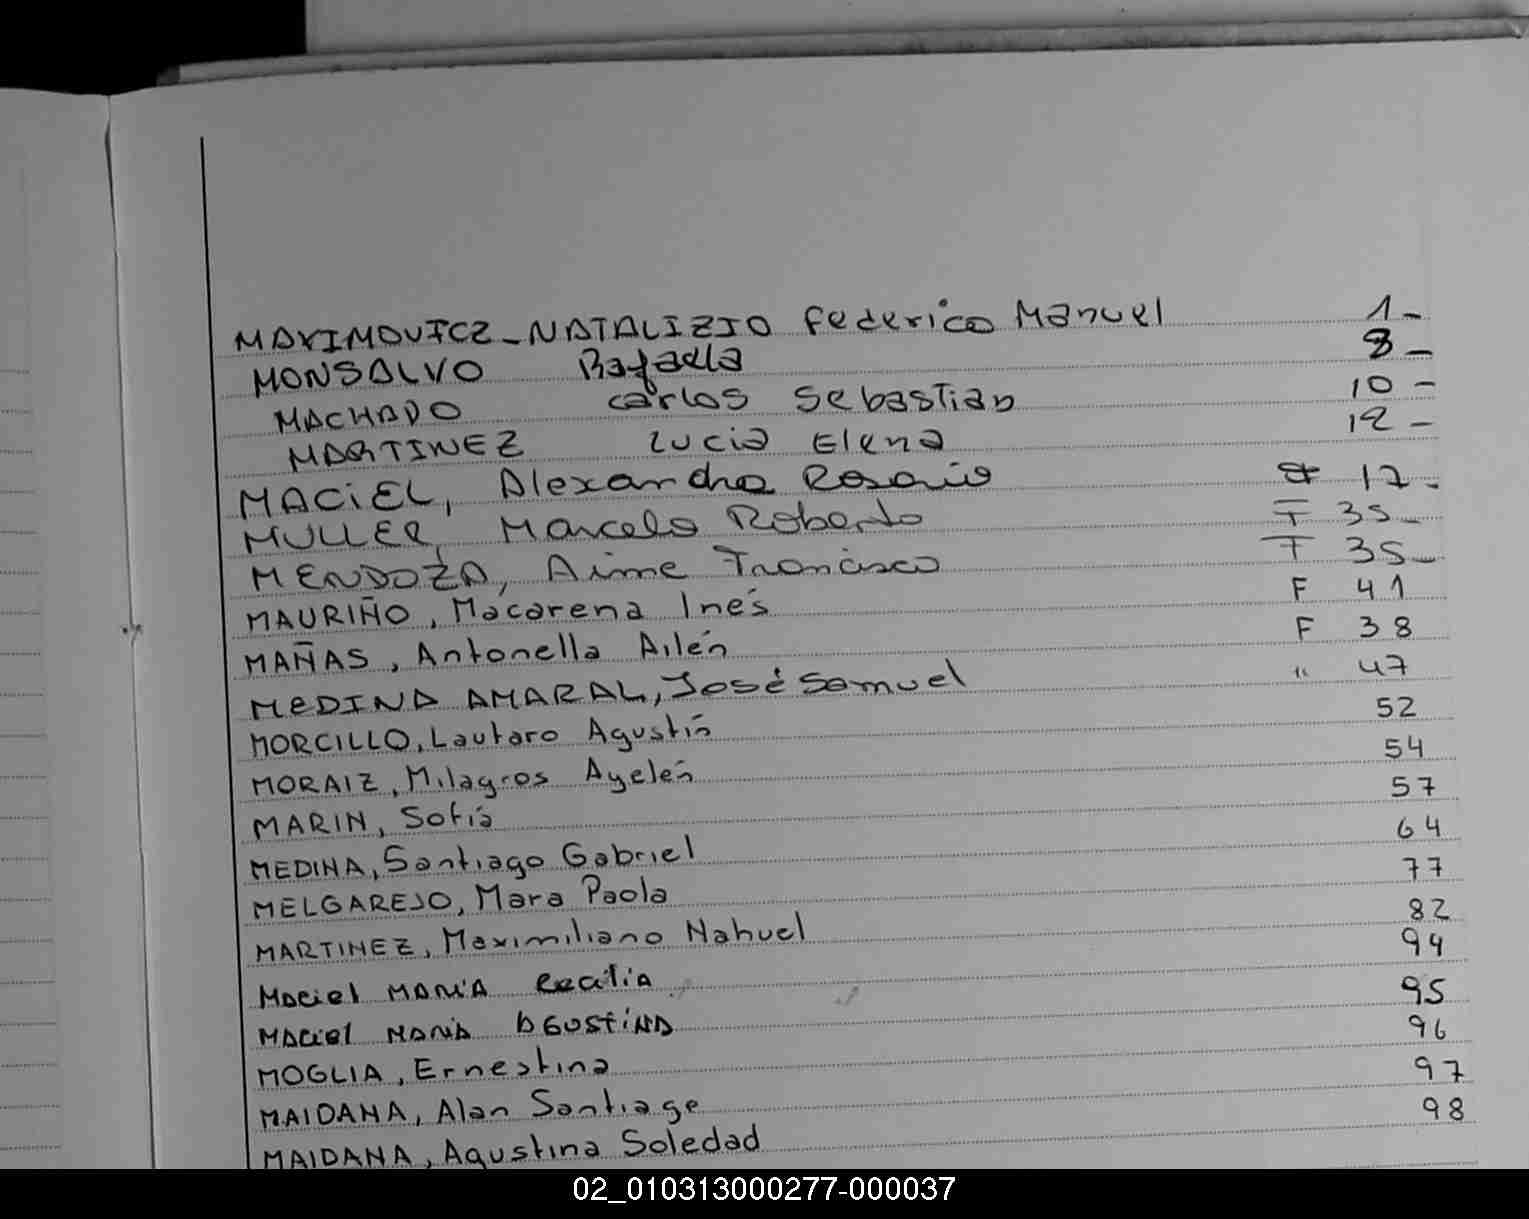 MAXIMOVICZ-NATALIZIO Federico Manuel 1-
MONSALVO Rafaela 8-
MACHADO Carlos Sebastian 10-
MARTINEZ Lucia Elena 12-
MACIEL, Alexandra Rosario 17-
MULLER Marcelo Roberto F 35-
MENDOZA, Aime Francisco F 35-
MAURIÑO, Macarena Inés F 41
MAÑAS, Antonella Ailén F 38
MEDINA AMARAL, José Samuel " 47
MORCILLO, Lautaro Agustín 52
MORAIZ, Milagros Ayelén 54
MARIN, Sofía 57
MEDINA, Santiago Gabriel 64
MELGAREJO, Mara Paola 77
MARTINEZ, Maximiliano Nahuel 82
Maciel MARIA Cecilia 94
MACIEL MARIA AGUSTINA 95
MOGLIA, Ernestina 96
MAIDANA, Alan Santiago 97
MAIDANA, Agustina Soledad 98
02_010313000277-000037